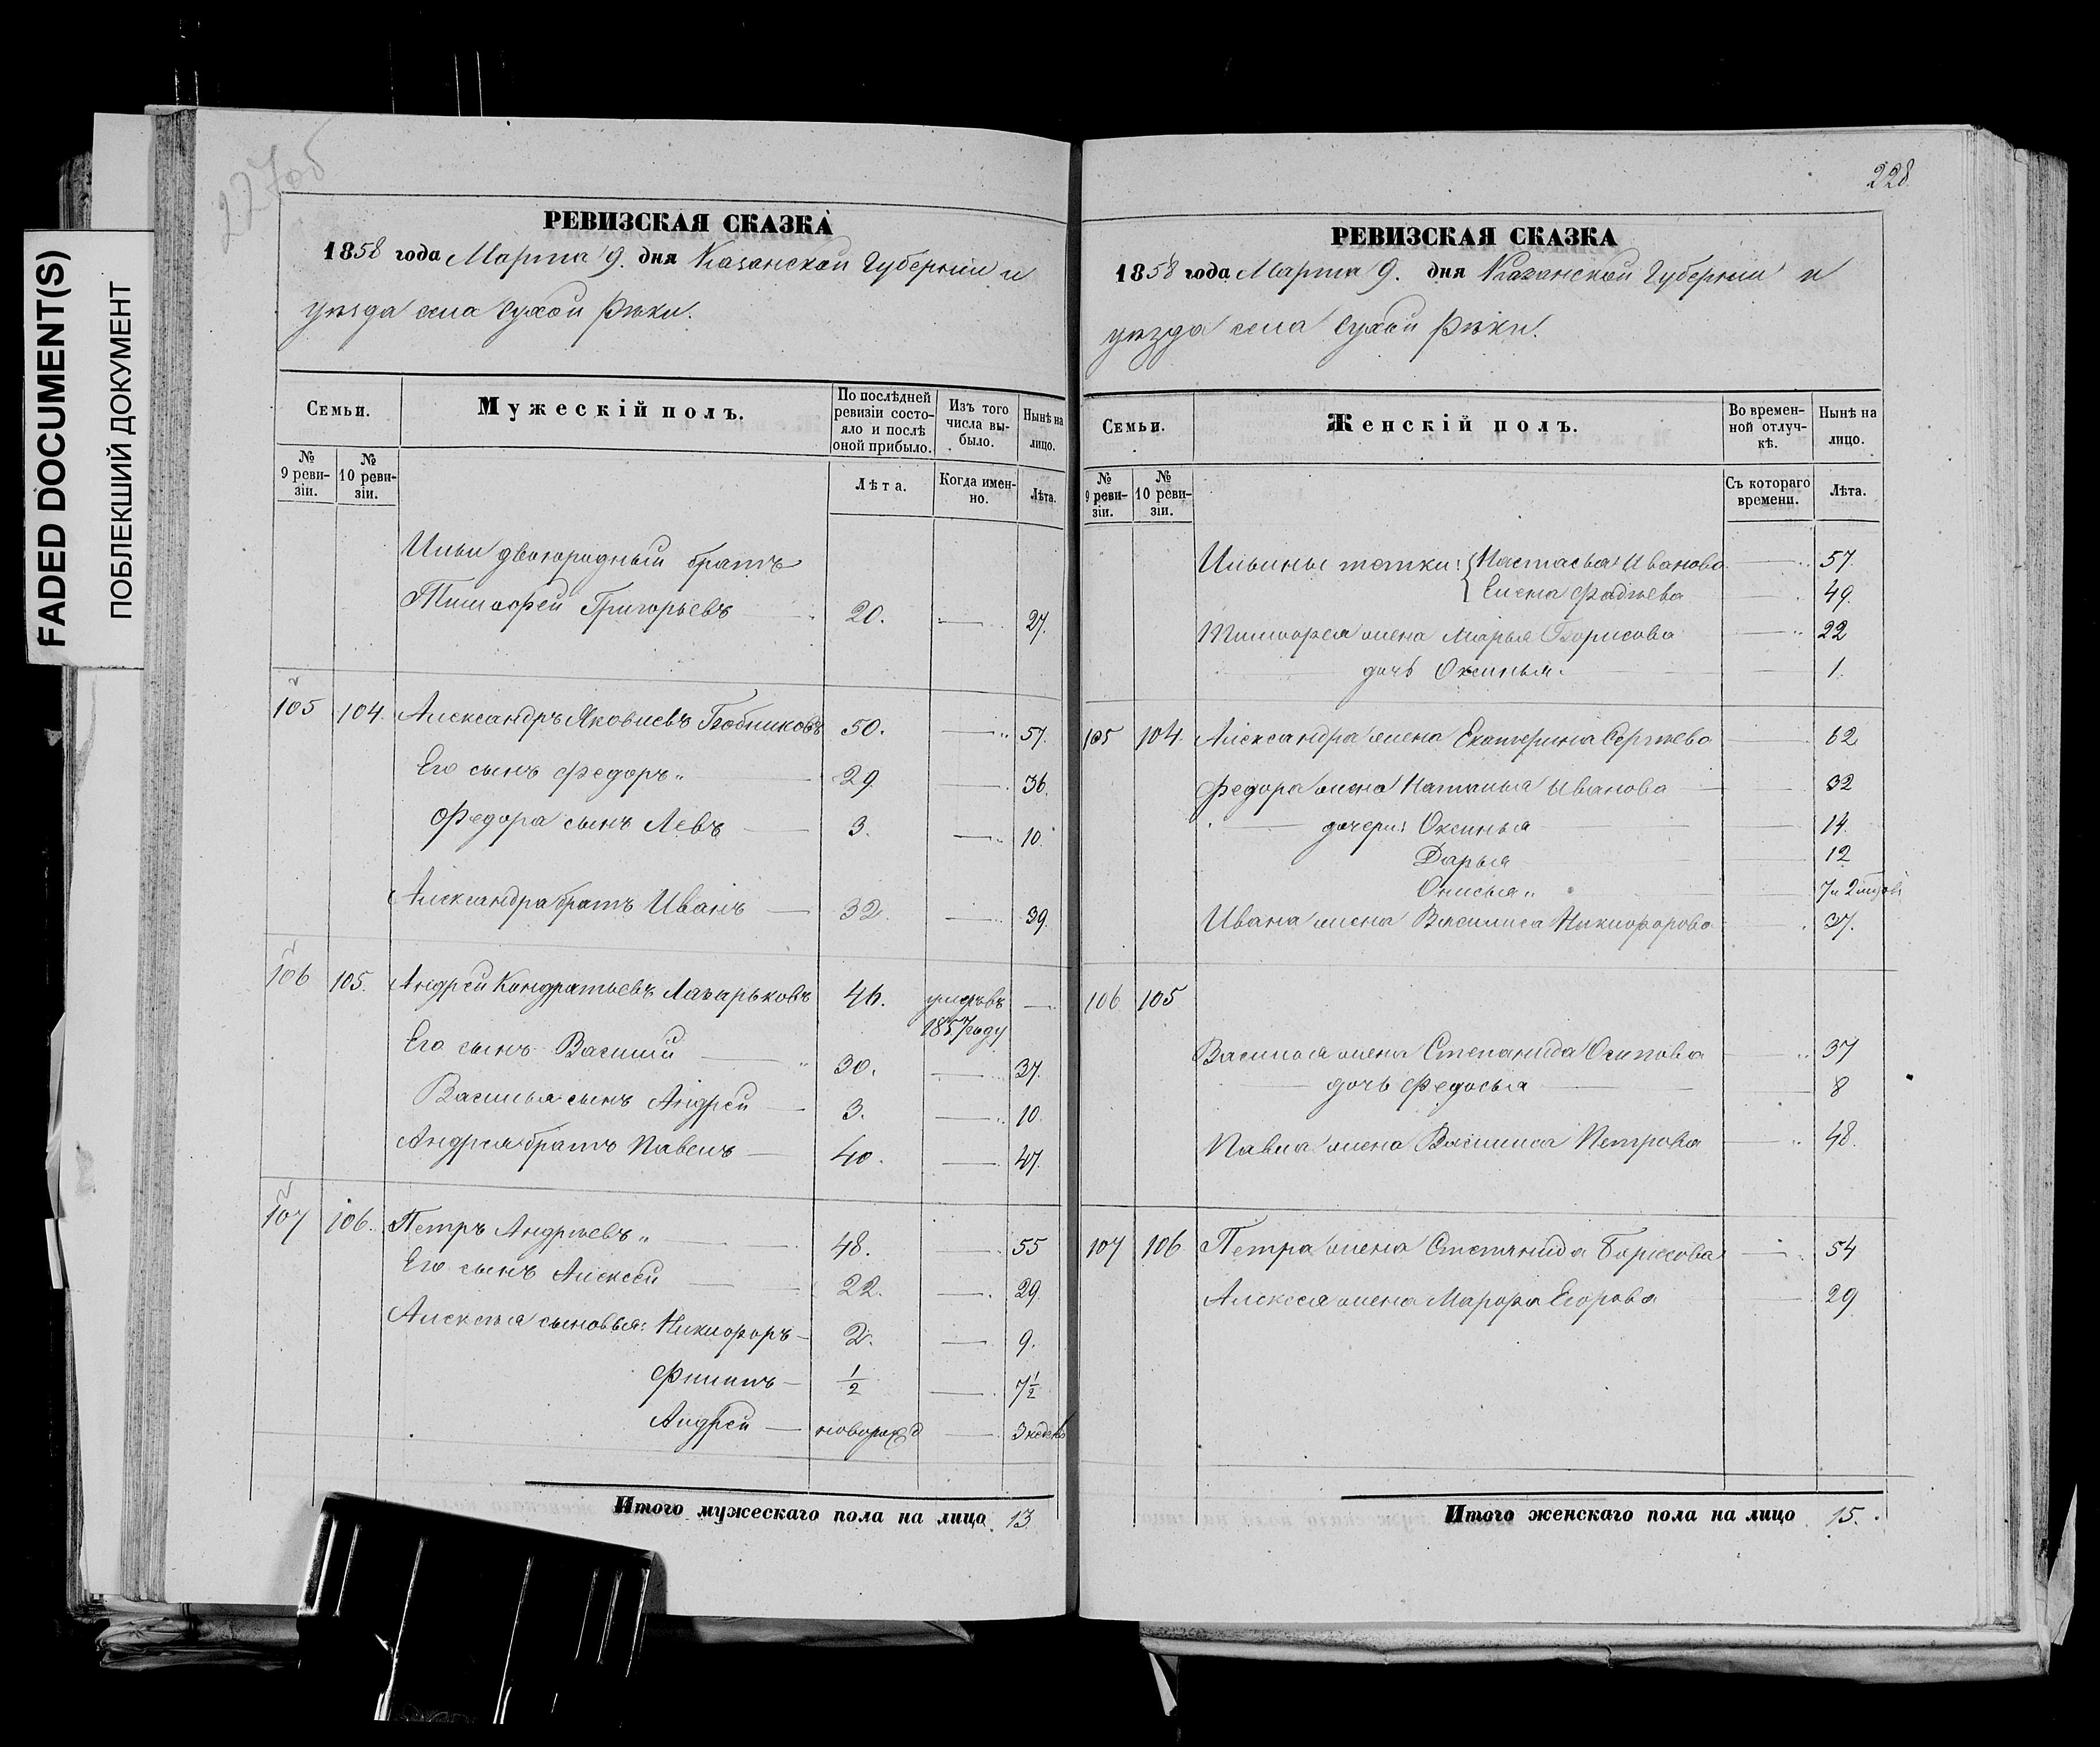 FADED DOCUMENT(S)
ПОБЛЕКШИЙ ДОКУМЕНТ
227об
РЕВИЗСКАЯ СКАЗКА
1858 года Марта 9. дня Казанской Губерніи и
уѣзда села Сухой Рѣки.
Семьи.
Мужескій полъ.
По послѣдней ревизіи состояло и послѣ оной прибыло.
Изъ того числа выбыло.
Нынѣ на лицо.
№ 9 ревизіи.
№ 10 ревизіи.
Лѣта.
Когда именно.
Лѣта.
Ильи двоюродный братъ
Тимофей Григорьевъ 20. 27.
105 104. Александръ Яковлевъ Бобниковъ 50. 57.
Его сынъ Федоръ 29. 36.
Федора сынъ Левъ 3. 10.
Александра братъ Иванъ 32. 39.
106 105. Андрей Кондратьевъ Лазарьковъ 46. умеръ въ —
1857 году
Его сынъ Василій 30. 37.
Василья сынъ Андрей 3. 10.
Андрея братъ Павелъ 40. 47.
107 106. Петръ Андрѣевъ 48. 55
Его сынъ Алексей 22. 29.
Алексѣя сыновья: Никифоръ 2. 9.
Филипъ ½ 7½
Андрей новорожд 3 недель
Итого мужескаго пола на лицо 13.
228.
РЕВИЗСКАЯ СКАЗКА
1858 года Марта 9. дня Казанской Губерніи и
уѣзда села Сухой Рѣки.
Семьи.
Женскій полъ.
Во временной отлучкѣ.
Нынѣ на лицо.
№ 9 ревизіи.
№ 10 ревизіи.
Съ котораго времени.
Лѣта.
Ильины тетки: Настасья Иванова 57.
Елена Фадѣева 49.
Тимофея жена Марья Борисова 22
дочь Оксинья. 1.
105 104. Александра жена Екатерина Сергѣева 62
Федора жена Наталья Иванова 32
дочери: Оксинья 14.
Дарья 12
Онисья 7 и 2
Ивана жена Василиса Никифорова 37.
106 105
Василья жена Степанида Осипова 37
дочь Федосья 8
Павла жена Василиса Петрова 48.
107 106 Петра жена Степанида Борисова 54
Алексея жена Марфа Егорова 29
Итого женскаго пола на лицо 15.